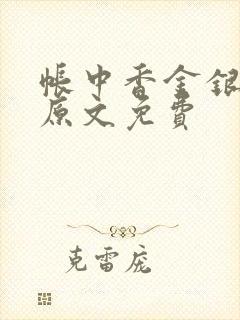 帐中香金银
原文免费
克雷庞